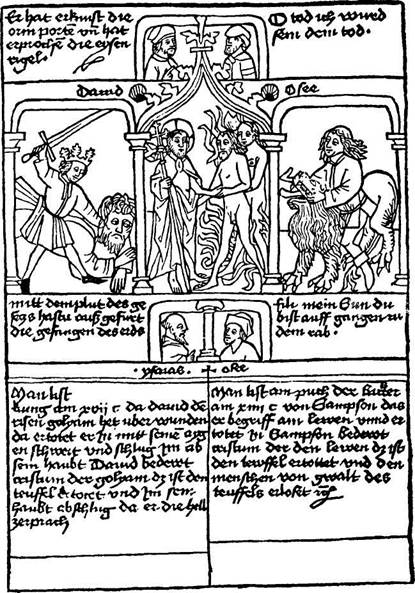 Er hat erknist die
orin porte vn̄ hat
erproche die eysen
rigel.
O tod ich wurd
sein dein tod.
Dauid
Osee
mitt dem plut des ge
secz hastu auß gefurt
die gefangen des
fili mein Sun du
bist auff gangen zu
dem rab.
ysaias
Man list
kung am xvij c da dauid de
risen goliam het uber wunden
da ertotet er In mitt seine aige
en schwert und schlug Im ab
sein haubt Dauid bedewt
cristum der goliam dz ist den
teuffel ertotet und Im sein
haubt abschlug da er die hell
zerprach
Man list am puch der
am xiiij c von Sampson das
er begreff ain lewen unnd er
totet In Sampson bedewt
cristum der den lewen dz ist
den teuffel ertottet und den
menschen von gwalt des
teuffels erlost